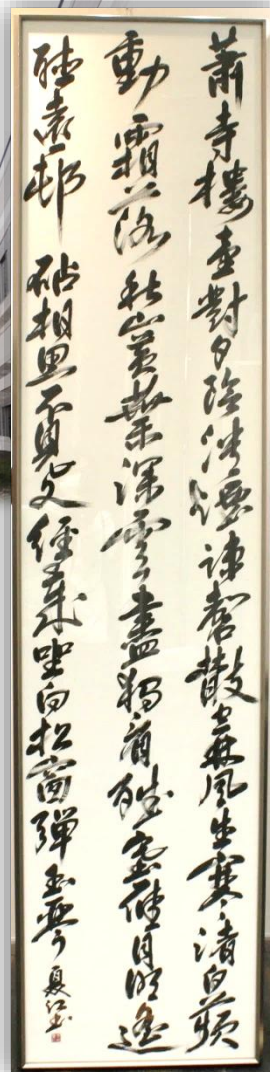 蕭寺樓臺對夕陰淡煙疎磬散空林風生寒渚白蘋
動霜落秋山黃葉深雲盡獨看晴塞雁月明遙
聴遠邨砧相思不見又經歳坐向松窗彈玉琴